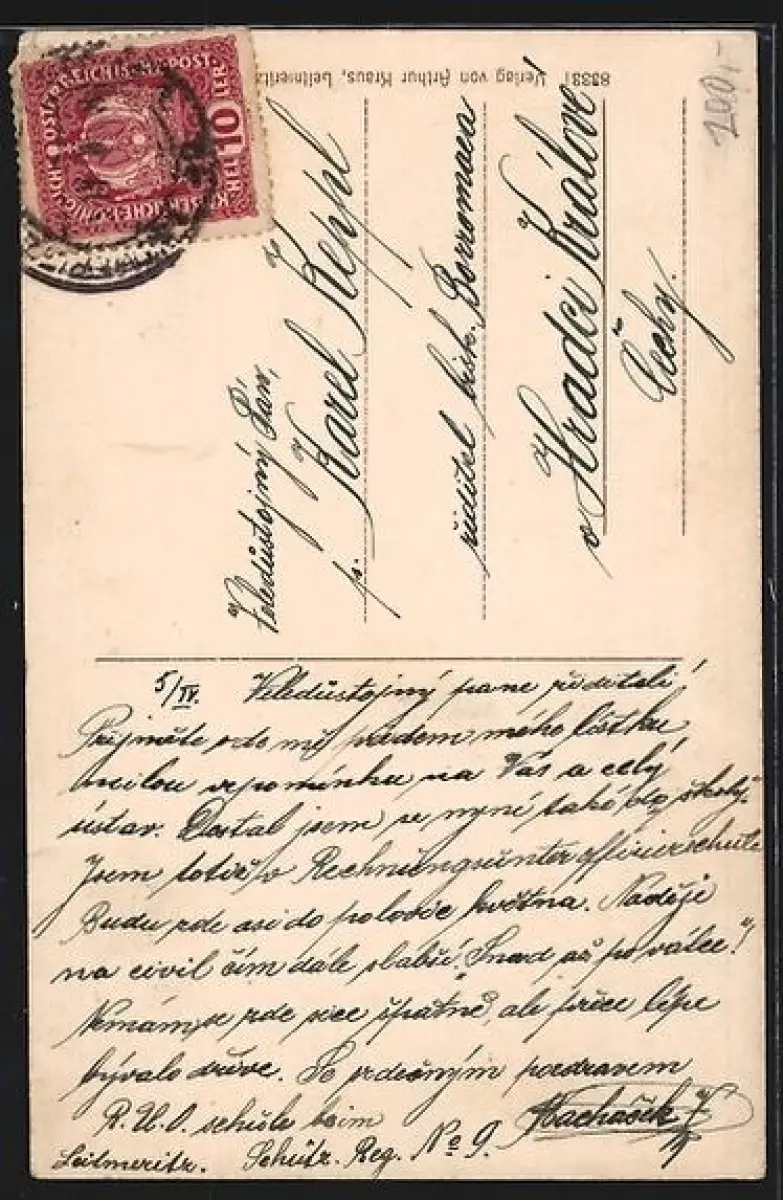 83331 Verlag von Arthur Kraus, Leitmeritz
KAISERLICHE KÖNIGLICHE ÖSTERREICHISCHE POST
10
HELLER
200,-
Veledůstojný Pán,
p. Karel Keppl
ředitel bisk. Borromaea
v Hradci Králové
Čechy.
5/IV. Veledůstojný pane řediteli!
Přijměte ode mě předem mého lístku
milou vzpomínku na Vás a celý
ústav. Dostal jsem se nyní také do "školy".
Jsem totiž v Rechnungsunteroffizierschule
Budu zde asi do polovice května. Naděje
na civil čím dále slabší. Snad až po válce!
Nemám se zde sice špatně, ale přece lépe
bývalo dříve. Se srdečným pozdravem
R. U. O. schule beim Macháček
Leitmeritz. Schütz. Reg. No 9.